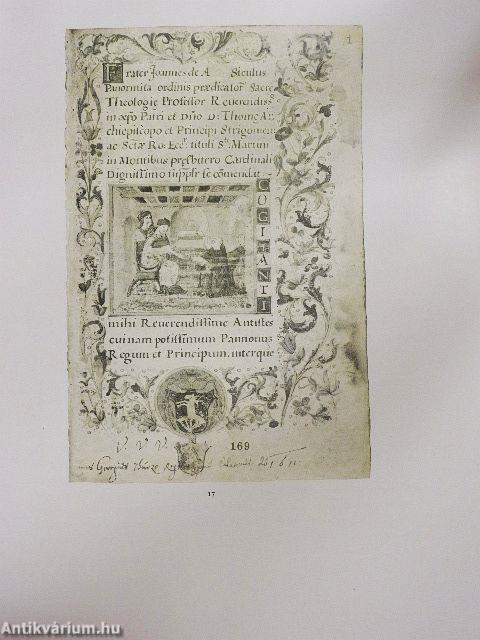 1
Frater Joannes de A Siculus
Panormita ordinis prædicator Sacre
Theologie Professor Reverendiss
in xpo Patri et Dño D: Thome Ar
chiepiscopo et Principi Strigonien
ac Sctæ Ro: Eccᵉ tituli Sᵗⁱ Martini
in Montibus presbitero Cardinali
Dignissimo supplr se comendat
COGITANTI
mihi Reverendissime Antistes
cuinam potissimum Pannonius
Regum et Principum, interque
V V V
169
Georgius
17
Antikvárium.hu